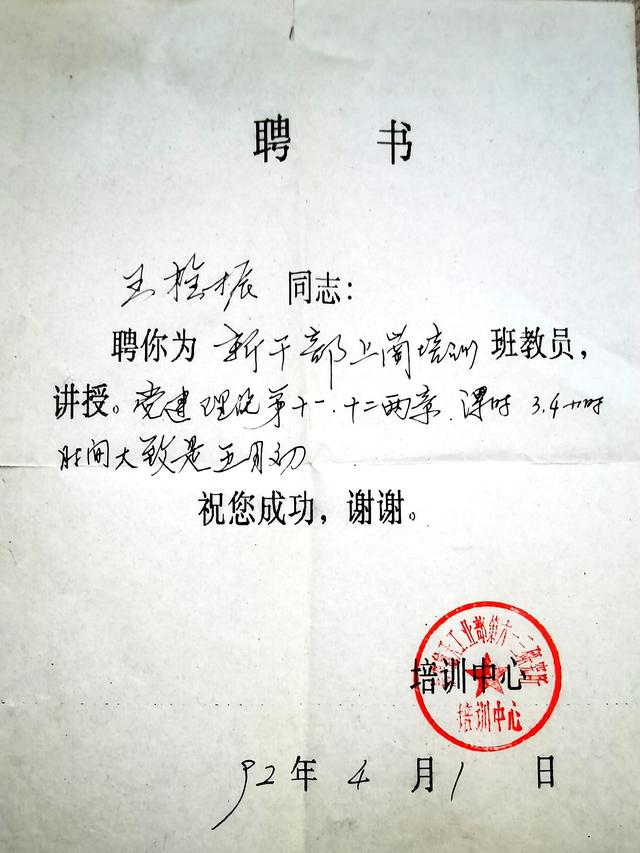 聘 书
王栓振 同志：
聘你为 新干部上岗培训 班教员，
讲授。党建理论第十一.十二两章 课时 3.4小时
时间大致是五月初
祝您成功，谢谢。
工业部第六一三研究所
培训中心
培训中心
92 年 4 月 1 日